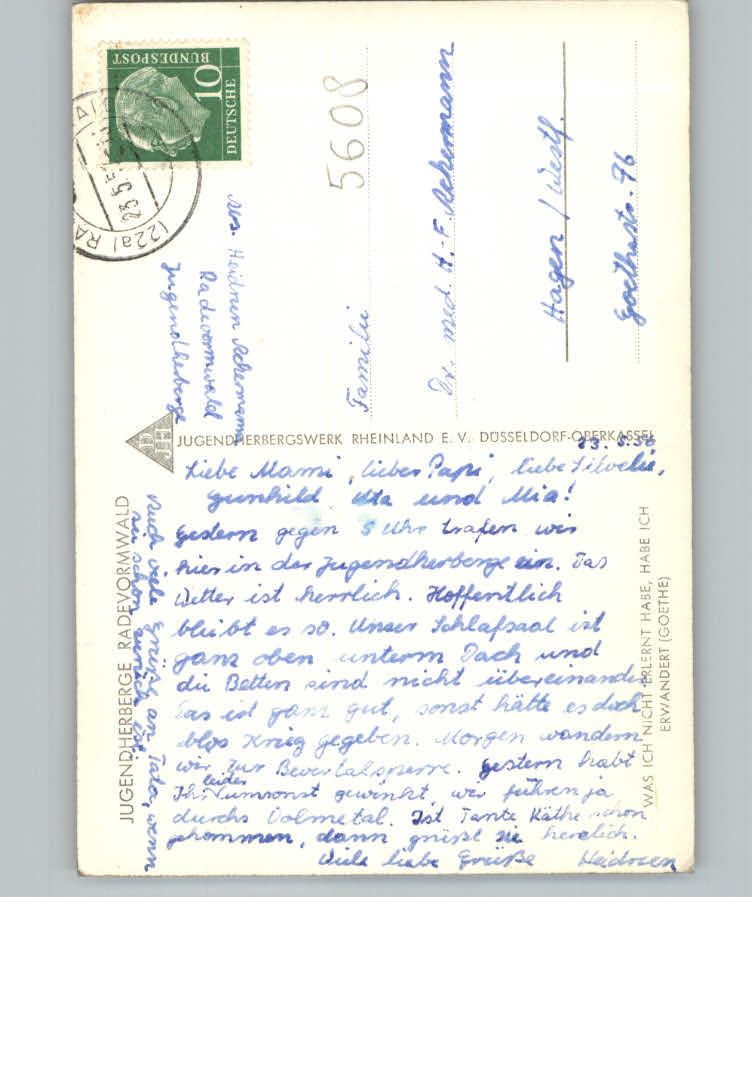 DEUTSCHE
BUNDESPOST
10
(22a) RA
23.5.5
5608
Abs. Heidrun Ackermann
Radevormwald
Jugendherberge
Familie
Dr. med. H.-F. Ackermann
Hagen / Westf.
Goethestr. 76
DJH
JUGENDHERBERGSWERK RHEINLAND E. V. DÜSSELDORF-OBERKASSEL
JUGENDHERBERGE RADEVORMWALD
WAS ICH NICHT ERLERNT HABE, HABE ICH
ERWANDERT (GOETHE)
23. 5. 56
Liebe Mami, lieber Papi, liebe
Gunhild, Uta und Mia!
Gestern gegen 5 Uhr trafen wir
hier in der Jugendherberge ein. Das
Wetter ist herrlich. Hoffentlich
bleibt es so. Unser Schlafsaal ist
ganz oben unterm Dach und
die Betten sind nicht übereinander.
Das ist ganz gut, sonst hätte es doch
blos Krieg gegeben. Morgen wandern
wir zur Bevertalsperre. Gestern habt
Ihr leider umsonst gewinkt, wir fuhren ja
durchs Volmetal. Ist Tante Käthe schon
gekommen, dann grüßt sie herzlich.
Viele liebe Grüße Heidrun
Auch viele Grüße an Tata, wenn
sie schon zurück ist.